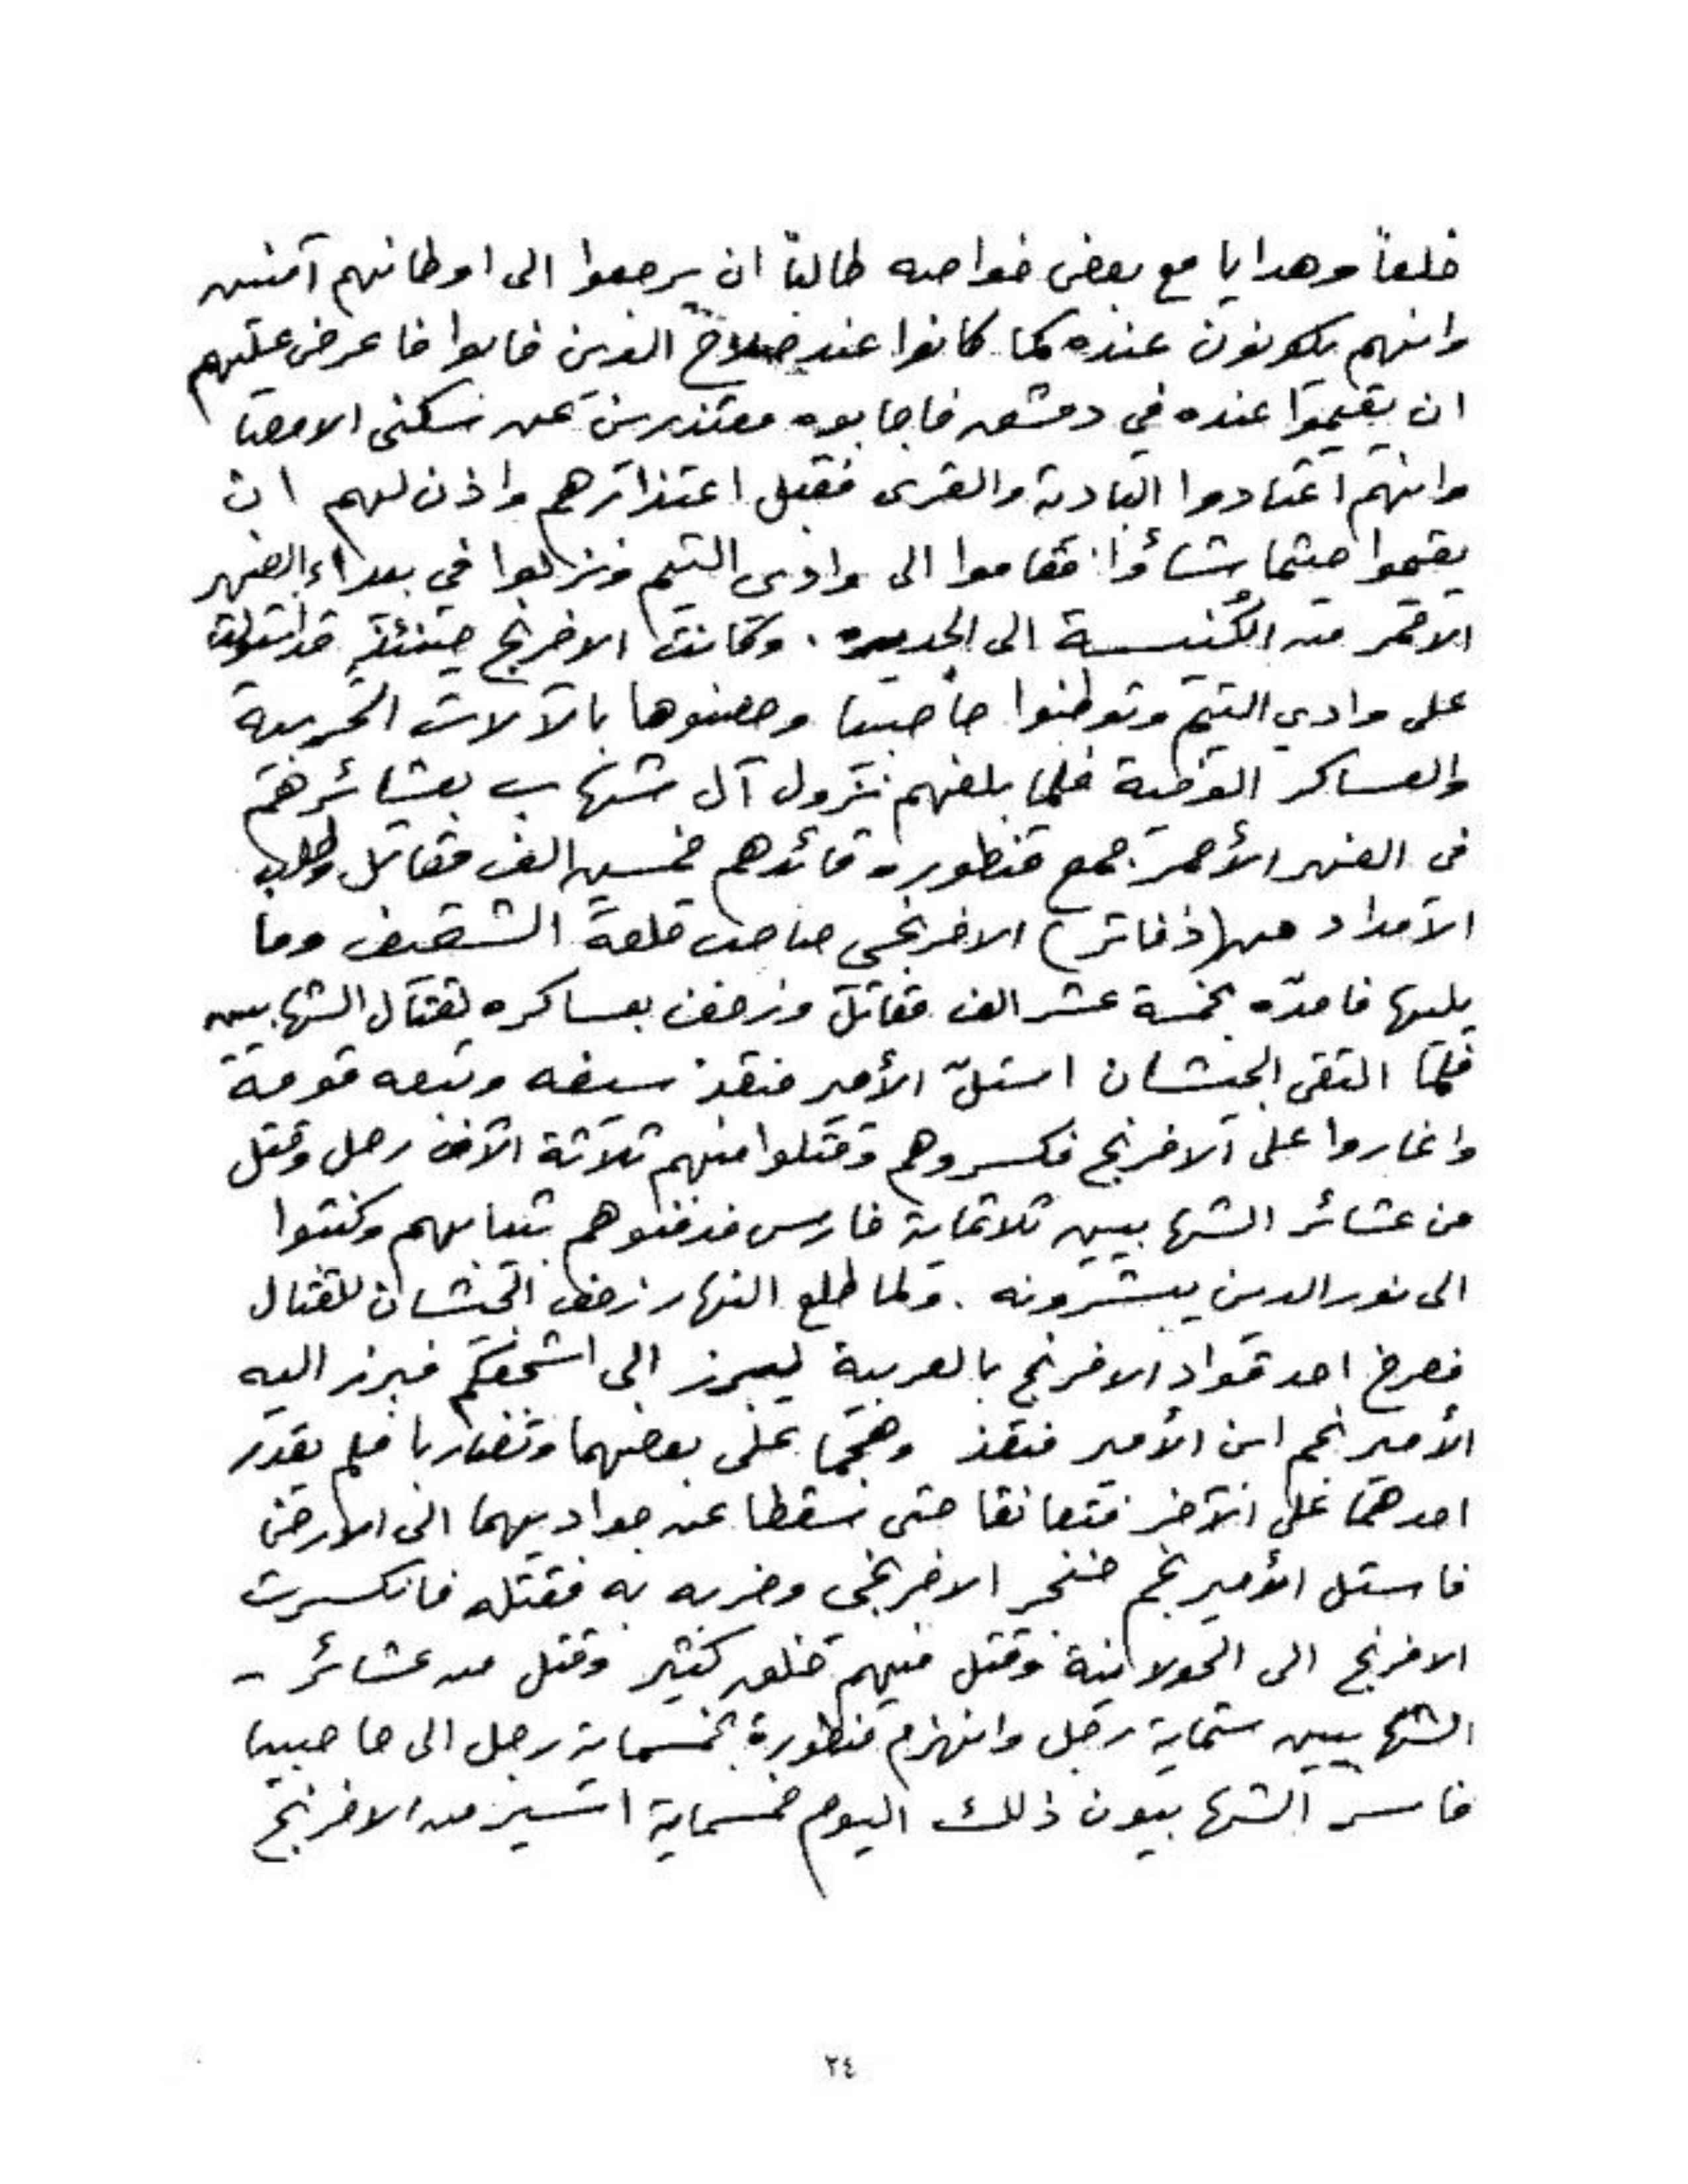 خلعاً وهدايا مع بعض خواصه طالباً ان يرجعوا الى اوطانهم آمنين
وانهم يكونون عنده كما كانوا عند صلاح الدين فابوا فاعرض عليهم
ان يقيموا عنده في دمشق فاجابوه معتذرين عن سكنى الامصا
وانهم اعتادوا البادية والقرى فقبل اعتذارهم واذن لهم ان
يقيموا حيثما شاؤا فقاموا الى وادى التيم ونزلوا في بيداء الضهر
الاحمر من الكُنيسة الى الجديده . وكانت الافرنج حينئذٍ قد استولت
على وادي التيم وتوطنوا حاصبيا وحصنوها بالآلات الحربية
والعساكر القوية فلما بلغهم نزول آل شهاب بعشائرهم
فى الضهر الأحمر جمع قنطوره قائدهم خمسين الف مقاتل وطلب
الامداد من (ذفاتر) الافرنجى صاحب قلعة الشقيف وما
يليها فامدّه بخمسة عشر الف مقاتل وزحف بعساكره لقتال الشهابيين
فلمّا التقى الجيشان استلّ الأمير منقذ سيفه وتبعه قومة
واغاروا على الافرنج فكسروهم وقتلوا منهم ثلاثة الآف رجل وقتل
من عشائر الشهابيين ثلاثماية فارس فدفنوهم بثيابهم وكتبوا
الى نور الدين يبشرونه . ولما طلع النهار زحف الجيشان للقتال
فصرخ احد قواد الافرنج بالعربية ليبرز الى اشجعكم فبرز اليه
الأمير نجم ابن الأمير منقذ وهجما على بعضهما وتضاربا فلم يقدر
احدهما على الآخر فتعانقا حتى سقطا عن جواديهما الى الارض
فاستل الأمير نجم خنجر الافرنجى وضربه به فقتله فانكسرت
الافرنج الى الحولانية وقتل منهم خلق كثير وقتل من عشائر -
الشهابيين ستماية رجل وانهزم قنطورة بخمسماية رجل الى حاصبيا
فاسر الشهابيون ذلك اليوم خمسماية اسير من الافرنج
٢٤